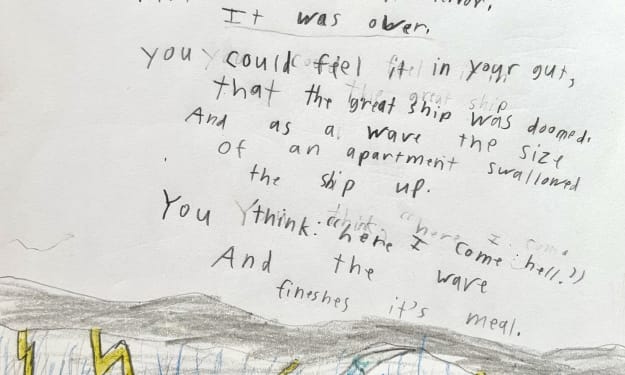 It was over.
you could feel it in your gut,
that the great ship was doomed.
And as a wave the size
of an apartment swallowed
the ship up.
You think: "here I come hell."
And the wave
fineshes it's meal.